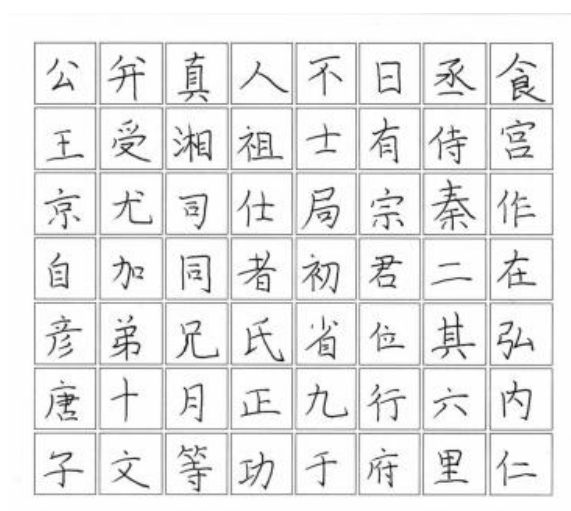 公弁真人不日丞食
王受湘祖士有侍宫
京尤司仕局宗秦作
自加同者初君二在
彦弟兄氏省位其弘
唐十月正九行六内
子文等功于府里仁